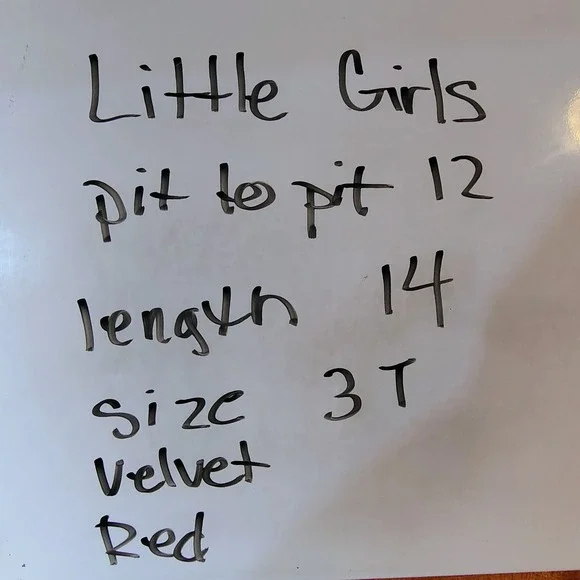 Little Girls
pit to pit 12
length 14
size 3T
Velvet
Red